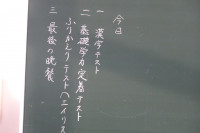 今日
一 漢字テスト
二 基礎学力定着テスト
ふりかえりテスト(エイリス
三 最後の晩餐